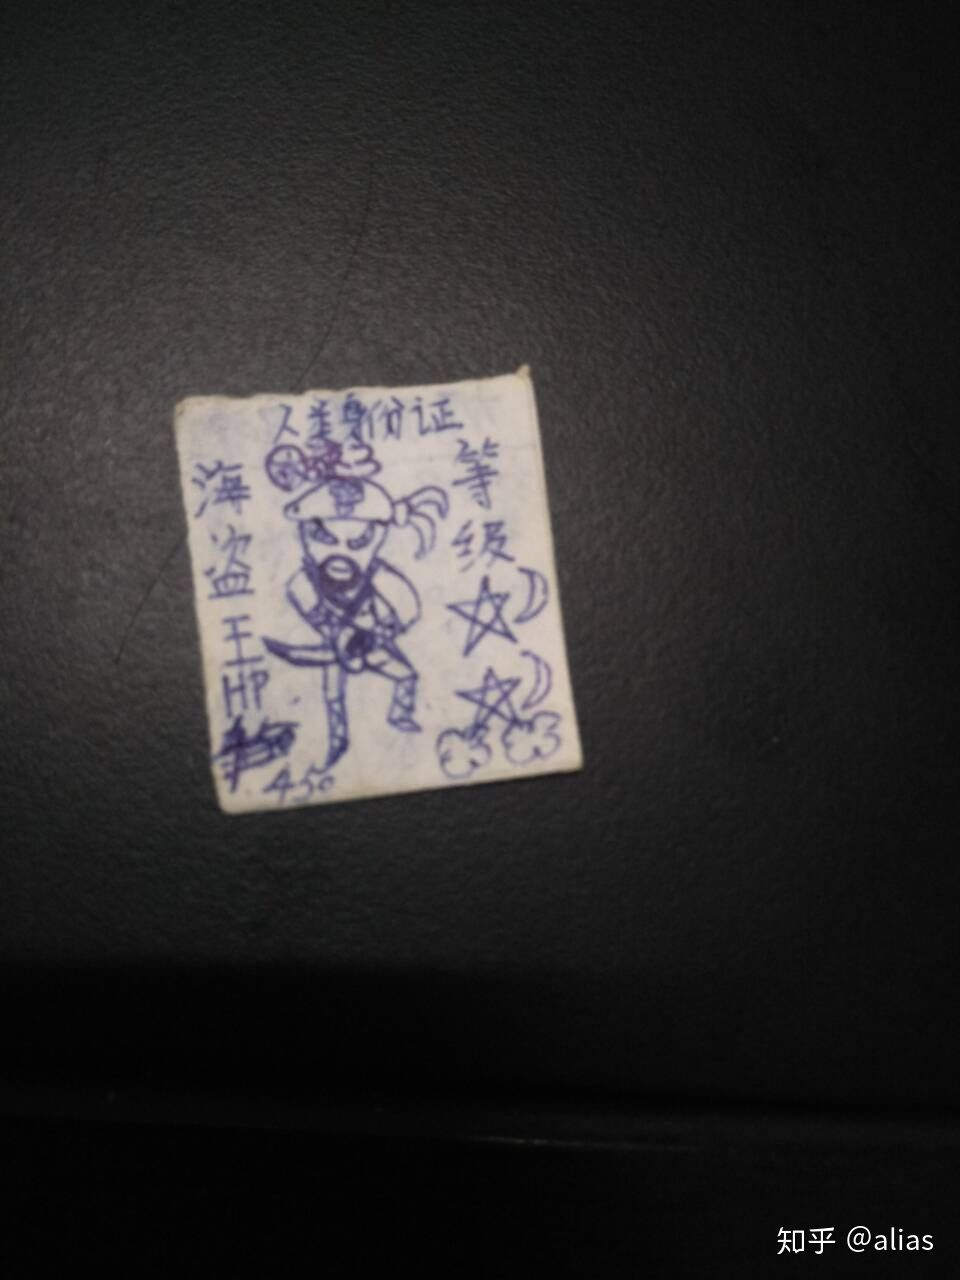 人类身份证
海盗王
HP
450
等级
知乎 @alias